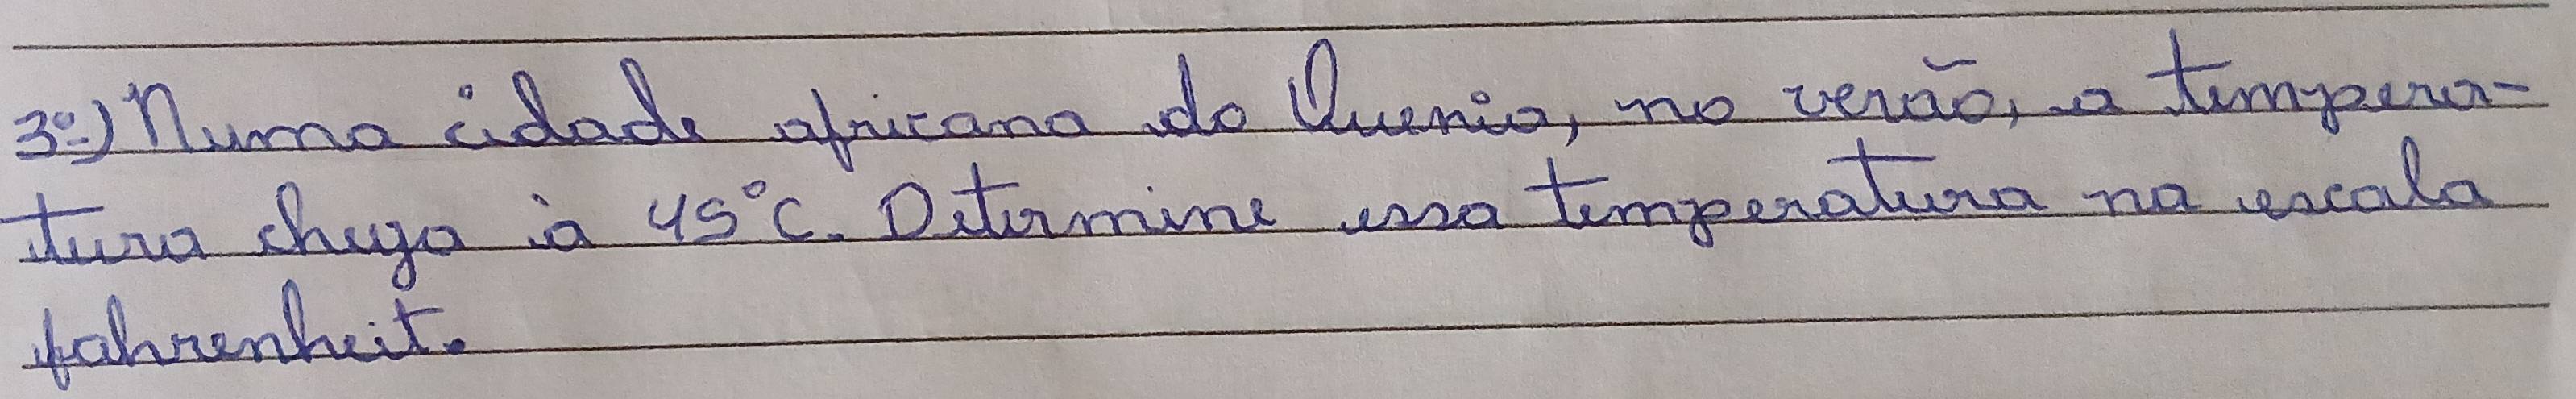 3º) Numa cidade africana do Quenia, no verão, a tempera-
tura chega à 45°C. Determine essa temperatura na escala
fahrenheit.